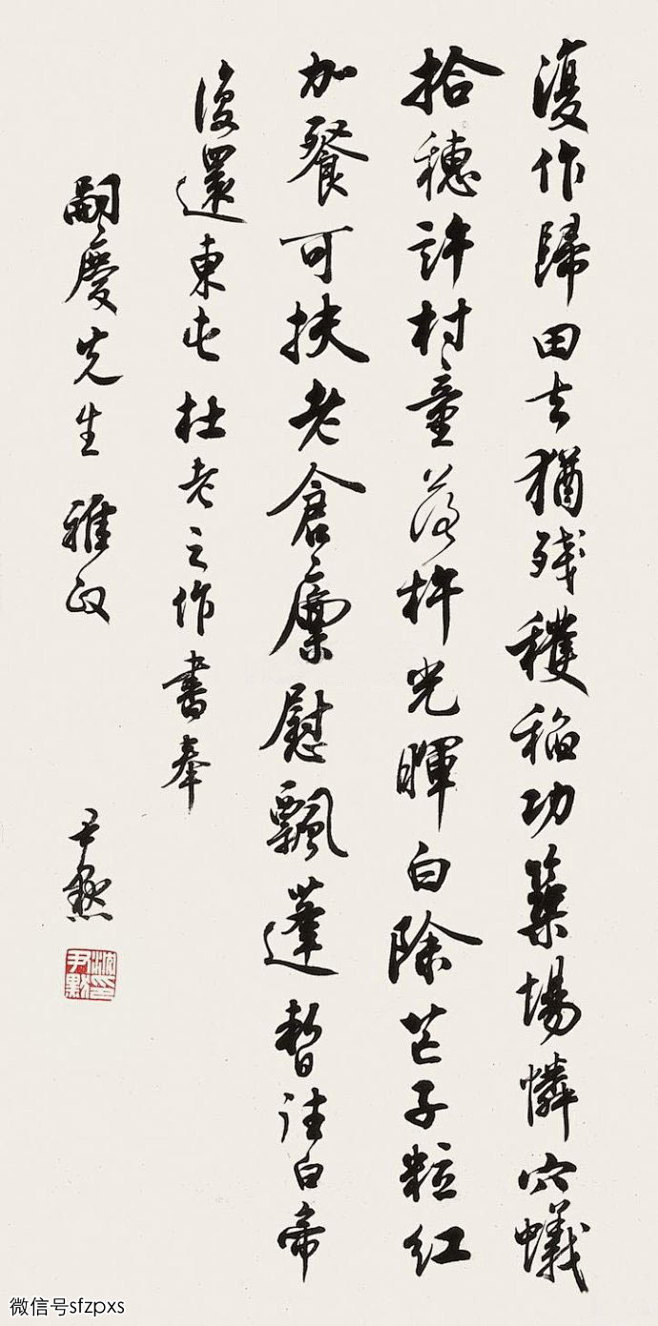 復作歸田去猶殘穫稻功築場憐穴蟻
拾穗許村童落杵光暉白除芒子粒紅
加餐可扶老倉廪慰飄蓬暫往白帝
復還東屯杜老之作書奉
嗣慶先生雅政
尹默
沈尹默印
微信号sfzpxs